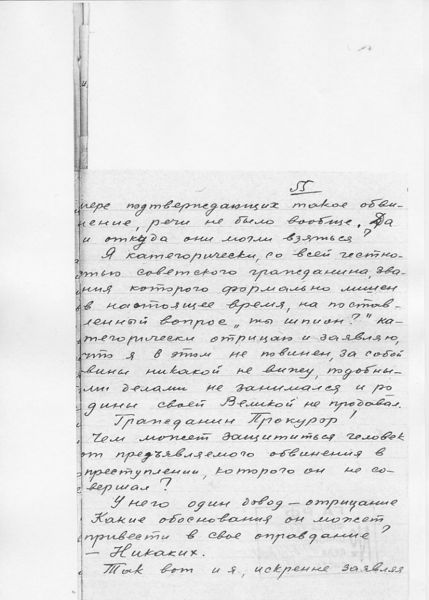 55
мере подтверждающих такое обви-
нение, речи не было вообще. Да
и откуда они могли взяться?
Я категорически, со всей честно-
тью советского гражданина, зва-
ния которого формально лишен
в настоящее время, на постав-
ленный вопрос „ты шпион?" ка-
тегорически отрицаю и заявляю,
что я в этом не повинен, за собой
вины никакой не вижу, подобны-
ми делами не занимался и ро
дины своей Великой не продавал.
Гражданин Прокурор!
Чем может защититься человек
от предъявляемого обвинения в
преступлении, которого он не со-
вершал?
У него один довод – отрицание
Какие обоснования он может
привести в свое оправдание?
– Никаких.
Так вот и я, искренне заявляя